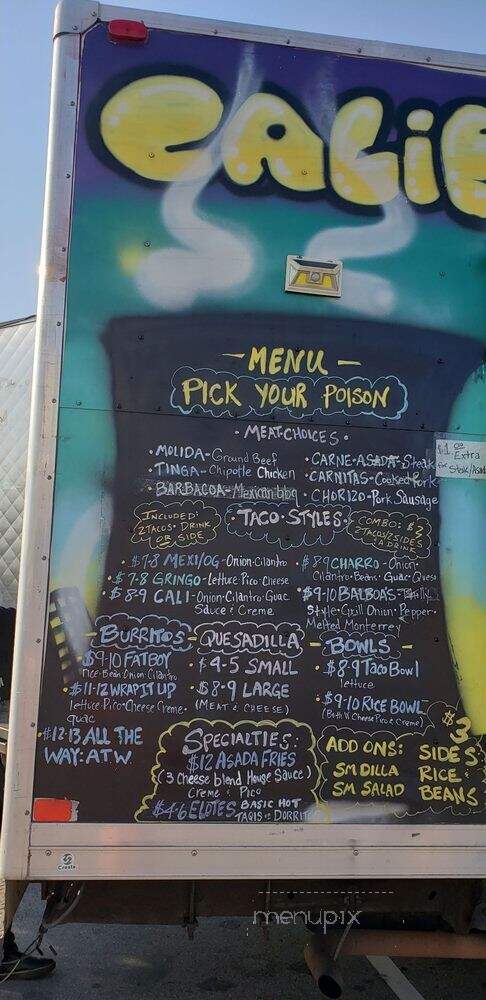 CALI
- MENU -
PICK YOUR POISON
• MEAT CHOICES •
• MOLIDA - Ground Beef
• TINGA - Chipotle Chicken
• BARBACOA - Mexican bbq
• CARNE ASADA - Steak
• CARNITAS - Cooked Pork
• CHORIZO - Pork Sausage
$1.00 Extra
for Steak/Asada
INCLUDED:
2 TACOS • DRINK
OR SIDE
• TACO • STYLES •
COMBO: $3
2 TACOS/2 SIDES
& A DRINK
• $7-8 MEXI/OG - Onion • Cilantro
• $7-8 GRINGO - Lettuce • Pico • Cheese
• $8-9 CALI - Onion • Cilantro • Guac
Sauce & Creme
• $8-9 CHARRO - Onion •
Cilantro • Beans • Guac Queso
• $9-10 BALBOAS - Philly
Style • Grill Onion • Pepper •
Melted Monterrey
- BURRITOS -
• $9-10 FATBOY
rice • Bean • Onion • Cilantro
• $11-12 WRAP IT UP
lettuce • Pico • Cheese Creme •
guac
• $12-13 ALL THE
WAY: ATW
QUESADILLA
• $4-5 SMALL
• $8-9 LARGE
(MEAT & CHEESE)
- BOWLS -
• $8-9 Taco Bowl
lettuce
• $9-10 RICE BOWL
(Both W Cheese Pico & Creme)
SPECIALTIES:
$12 ASADA FRIES
(3 Cheese blend House Sauce)
Creme & Pico
$4-6 ELOTES BASIC HOT
TAQIS or DORRITO
$3
ADD ONS: SIDES
SM DILLA RICE
SM SALAD BEANS
Crests
menupix